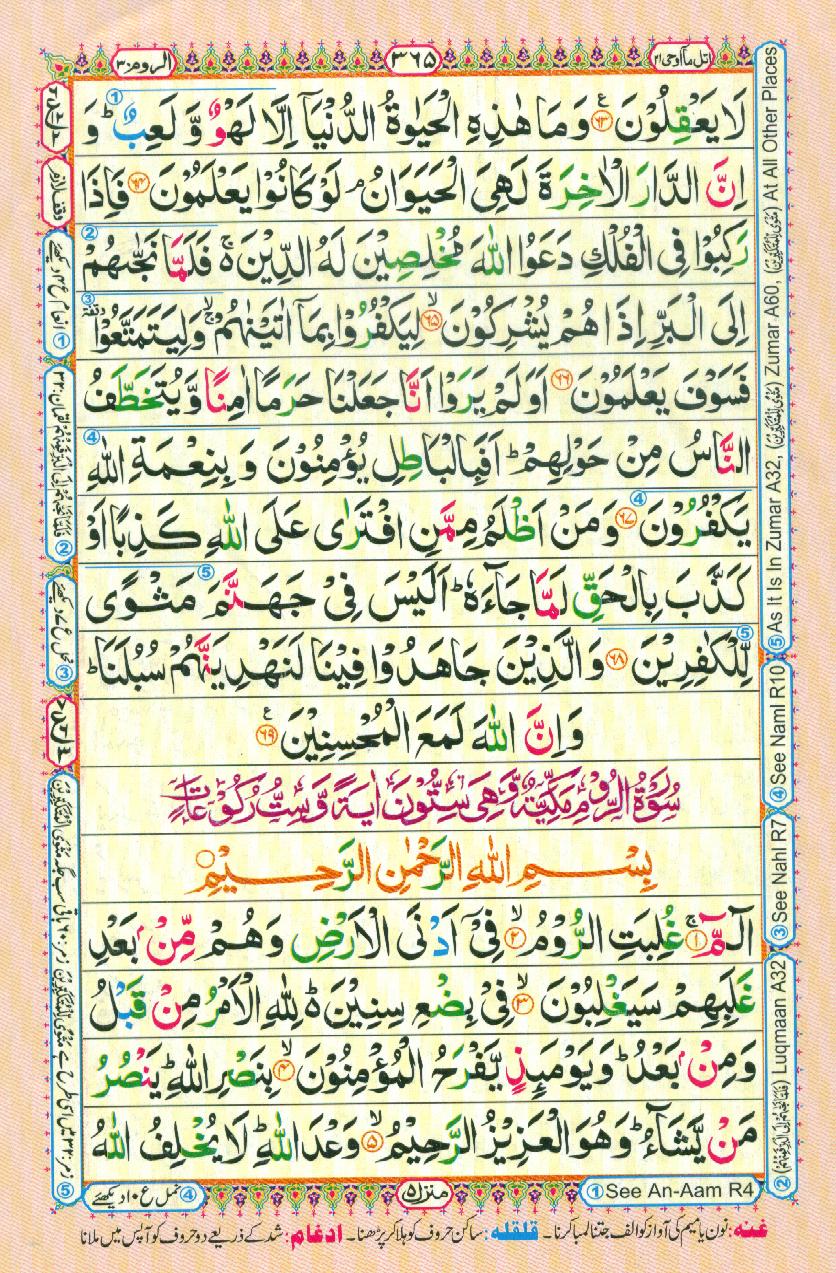 اتل ما اوحی ۲۱
۳۶۵
الروم ۳۰
لَا يَعْقِلُوْنَ ۶۳ وَمَا هٰذِهِ الْحَيٰوةُ الدُّنْيَآ اِلَّا لَهْوٌ وَّ لَعِبٌ ؕ وَ
اِنَّ الدَّارَ الْاٰخِرَةَ لَهِيَ الْحَيَوَانُ ۘ لَوْ كَانُوْا يَعْلَمُوْنَ ۶۴ فَاِذَا
رَكِبُوْا فِي الْفُلْكِ دَعَوُا اللّٰهَ مُخْلِصِيْنَ لَهُ الدِّيْنَ ۚ۬ فَلَمَّا نَجّٰىهُمْ
اِلَى الْبَرِّ اِذَا هُمْ يُشْرِكُوْنَ ۙ ۶۵ لِيَكْفُرُوْا بِمَآ اٰتَيْنٰهُمْ ۚۙ وَلِيَتَمَتَّعُوْا ۥ وقفة
فَسَوْفَ يَعْلَمُوْنَ ۶۶ اَوَلَمْ يَرَوْا اَنَّا جَعَلْنَا حَرَمًا اٰمِنًا وَّيُتَخَطَّفُ
النَّاسُ مِنْ حَوْلِهِمْ ؕ اَفَبِالْبَاطِلِ يُؤْمِنُوْنَ وَ بِنِعْمَةِ اللّٰهِ
يَكْفُرُوْنَ ۶۷ وَمَنْ اَظْلَمُ مِمَّنِ افْتَرٰى عَلَى اللّٰهِ كَذِبًا اَوْ
كَذَّبَ بِالْحَقِّ لَمَّا جَآءَهٗ ؕ اَلَيْسَ فِيْ جَهَنَّمَ مَثْوًى
لِّلْكٰفِرِيْنَ ۶۸ وَالَّذِيْنَ جَاهَدُوْا فِيْنَا لَنَهْدِيَنَّهُمْ سُبُلَنَا ؕ
وَاِنَّ اللّٰهَ لَمَعَ الْمُحْسِنِيْنَ ۶۹
سُوْرَةُ الرُّوْمِ مَكِّيَّةٌ وَّهِيَ سِتُّوْنَ اٰيَةً وَّسِتُّ رُكُوْعَاتٍ
بِسْمِ اللّٰهِ الرَّحْمٰنِ الرَّحِيْمِ
الٓمّٓ ۚ ۱ غُلِبَتِ الرُّوْمُ ۙ ۲ فِيْٓ اَدْنَى الْاَرْضِ وَهُمْ مِّنْۢ بَعْدِ
غَلَبِهِمْ سَيَغْلِبُوْنَ ۙ ۳ فِيْ بِضْعِ سِنِيْنَ ؕ۬ لِلّٰهِ الْاَمْرُ مِنْ قَبْلُ
وَمِنْۢ بَعْدُ ؕ وَيَوْمَئِذٍ يَّفْرَحُ الْمُؤْمِنُوْنَ ۙ ۴ بِنَصْرِ اللّٰهِ ؕ يَنْصُرُ
مَنْ يَّشَآءُ ؕ وَهُوَ الْعَزِيْزُ الرَّحِيْمُ ۙ ۵ وَعْدَ اللّٰهِ ؕ لَا يُخْلِفُ اللّٰهُ
⑤ As It Is In Zumar A32, (مَثْوًى لِّلْمُتَكَبِّرِيْنَ) Zumar A60, (مَثْوًى لِّلْمُتَكَبِّرِيْنَ) At All Other Places
④ See Naml R10
③ See Nahl R7
② (فَلَمَّا نَجّٰىهُمْ اِلَى الْبَرِّ فَمِنْهُمْ) Luqmaan A32
① انعام ع ۴ دیکھئے
② فَلَمَّا نَجّٰىهُمْ اِلَى الْبَرِّ فَمِنْهُمْ لقمان: ۳۲
③ نحل ع ۷ دیکھئے
④ نمل ع ۱۰ دیکھئے
منزل ۵
① See An-Aam R4
غنه: نون یا میم کی آواز کو الف جتنا لمبا کرنا۔ قلقله: ساکن حروف کو ہلا کر پڑھنا۔ ادغام: شد کے ذریعے دو حروف کو آپس میں ملانا